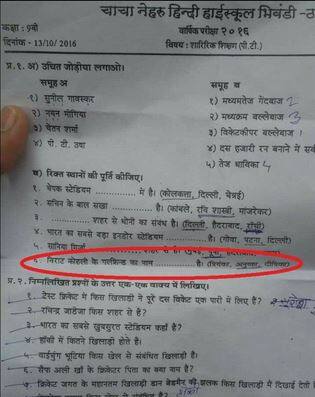 चाचा नेहरु हिन्दी हाईस्कूल भिवंडी -ठ
कक्षा : ९वी
वार्षिक परीक्षा २०१६
दिनांक - 13/10/2016
विषय : शारिरिक शिक्षण (पी.टी.)
प्र.१. अ) उचित जोड़ीया लगाओ।
समूह अ
समूह ब
१) सुनील गावस्कर
१) मध्यमतेज गेंदबाज 2
२) नयन मोंगिया
२) मध्यक्रम बल्लेबाज 3
३) चेतन शर्मा
३) विकेटकीपर बल्लेबाज 1
४) पी. टी. उषा
४) दस हजारी रन बनाने में सर्व
५) तेज धाविका 4
ब) रिक्त स्थानों की पूर्ति कीजिए।
१. चेपक स्टेडियम ............... में है। (कोलकत्ता, दिल्ली, चेन्नई)
२. सचिन के बाल सखा ............... है। (कांबले, रवि शास्त्री, मांजरेकर)
३. ............... शहर से धोनी का संबंध है। (दिल्ली, हैदराबाद, राँची)
४. भारत का सबसे बड़ा इनडोर स्टेडियम ............... है। (गोवा, पटना, दिल्ली)
५. सानिया मिर्जा ............... शहर से है।
६. विराट कोहली के गर्लफ्रेन्ड का नाम ............... है। (प्रियंका, अनुष्का, दीपिका)
प्र.२. निम्नलिखित प्रश्नों के उत्तर एक-एक वाक्य में लिखिए।
१. टेस्ट क्रिकेट में किस खिलाड़ी ने पूरे दस विकेट एक पारी में लिए हैं?
२. रविन्द्र जाडेजा किस शहर से है?
३. भारत का सबसे खुबसुरत स्टेडियम कहाँ है?
४. हॉकी में कितने खिलाड़ी होते है।
५. वाईचुंग भूटिया किस खेल से संबंधित खिलाड़ी है।
६. सैफ अली खाँ के क्रिकेटर पिता का क्या नाम है?
७. क्रिकेट जगत के महानतम खिलाड़ी डान ब्रेडमैन की झलक किस खिलाड़ी में दिखाई देती